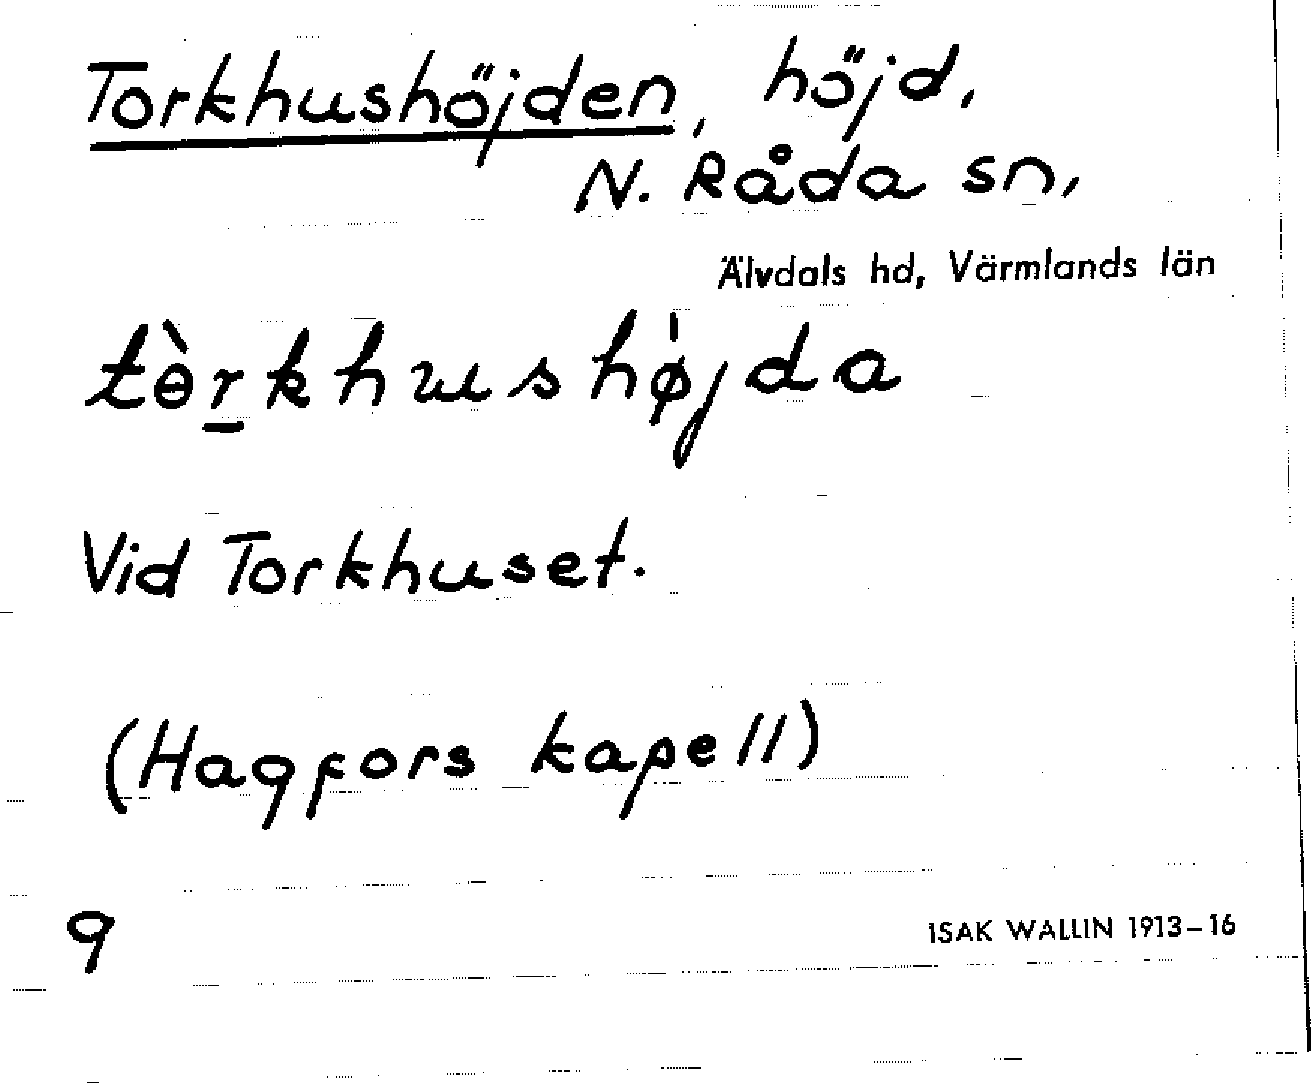 Torkhushöjden, höjd,
N. Råda sn,
Älvdals hd, Värmlands län
tɵ̀r̠khushø̍jda
Vid Torkhuset.
(Hagfors kapell)
9
ISAK WALLIN 1913–16